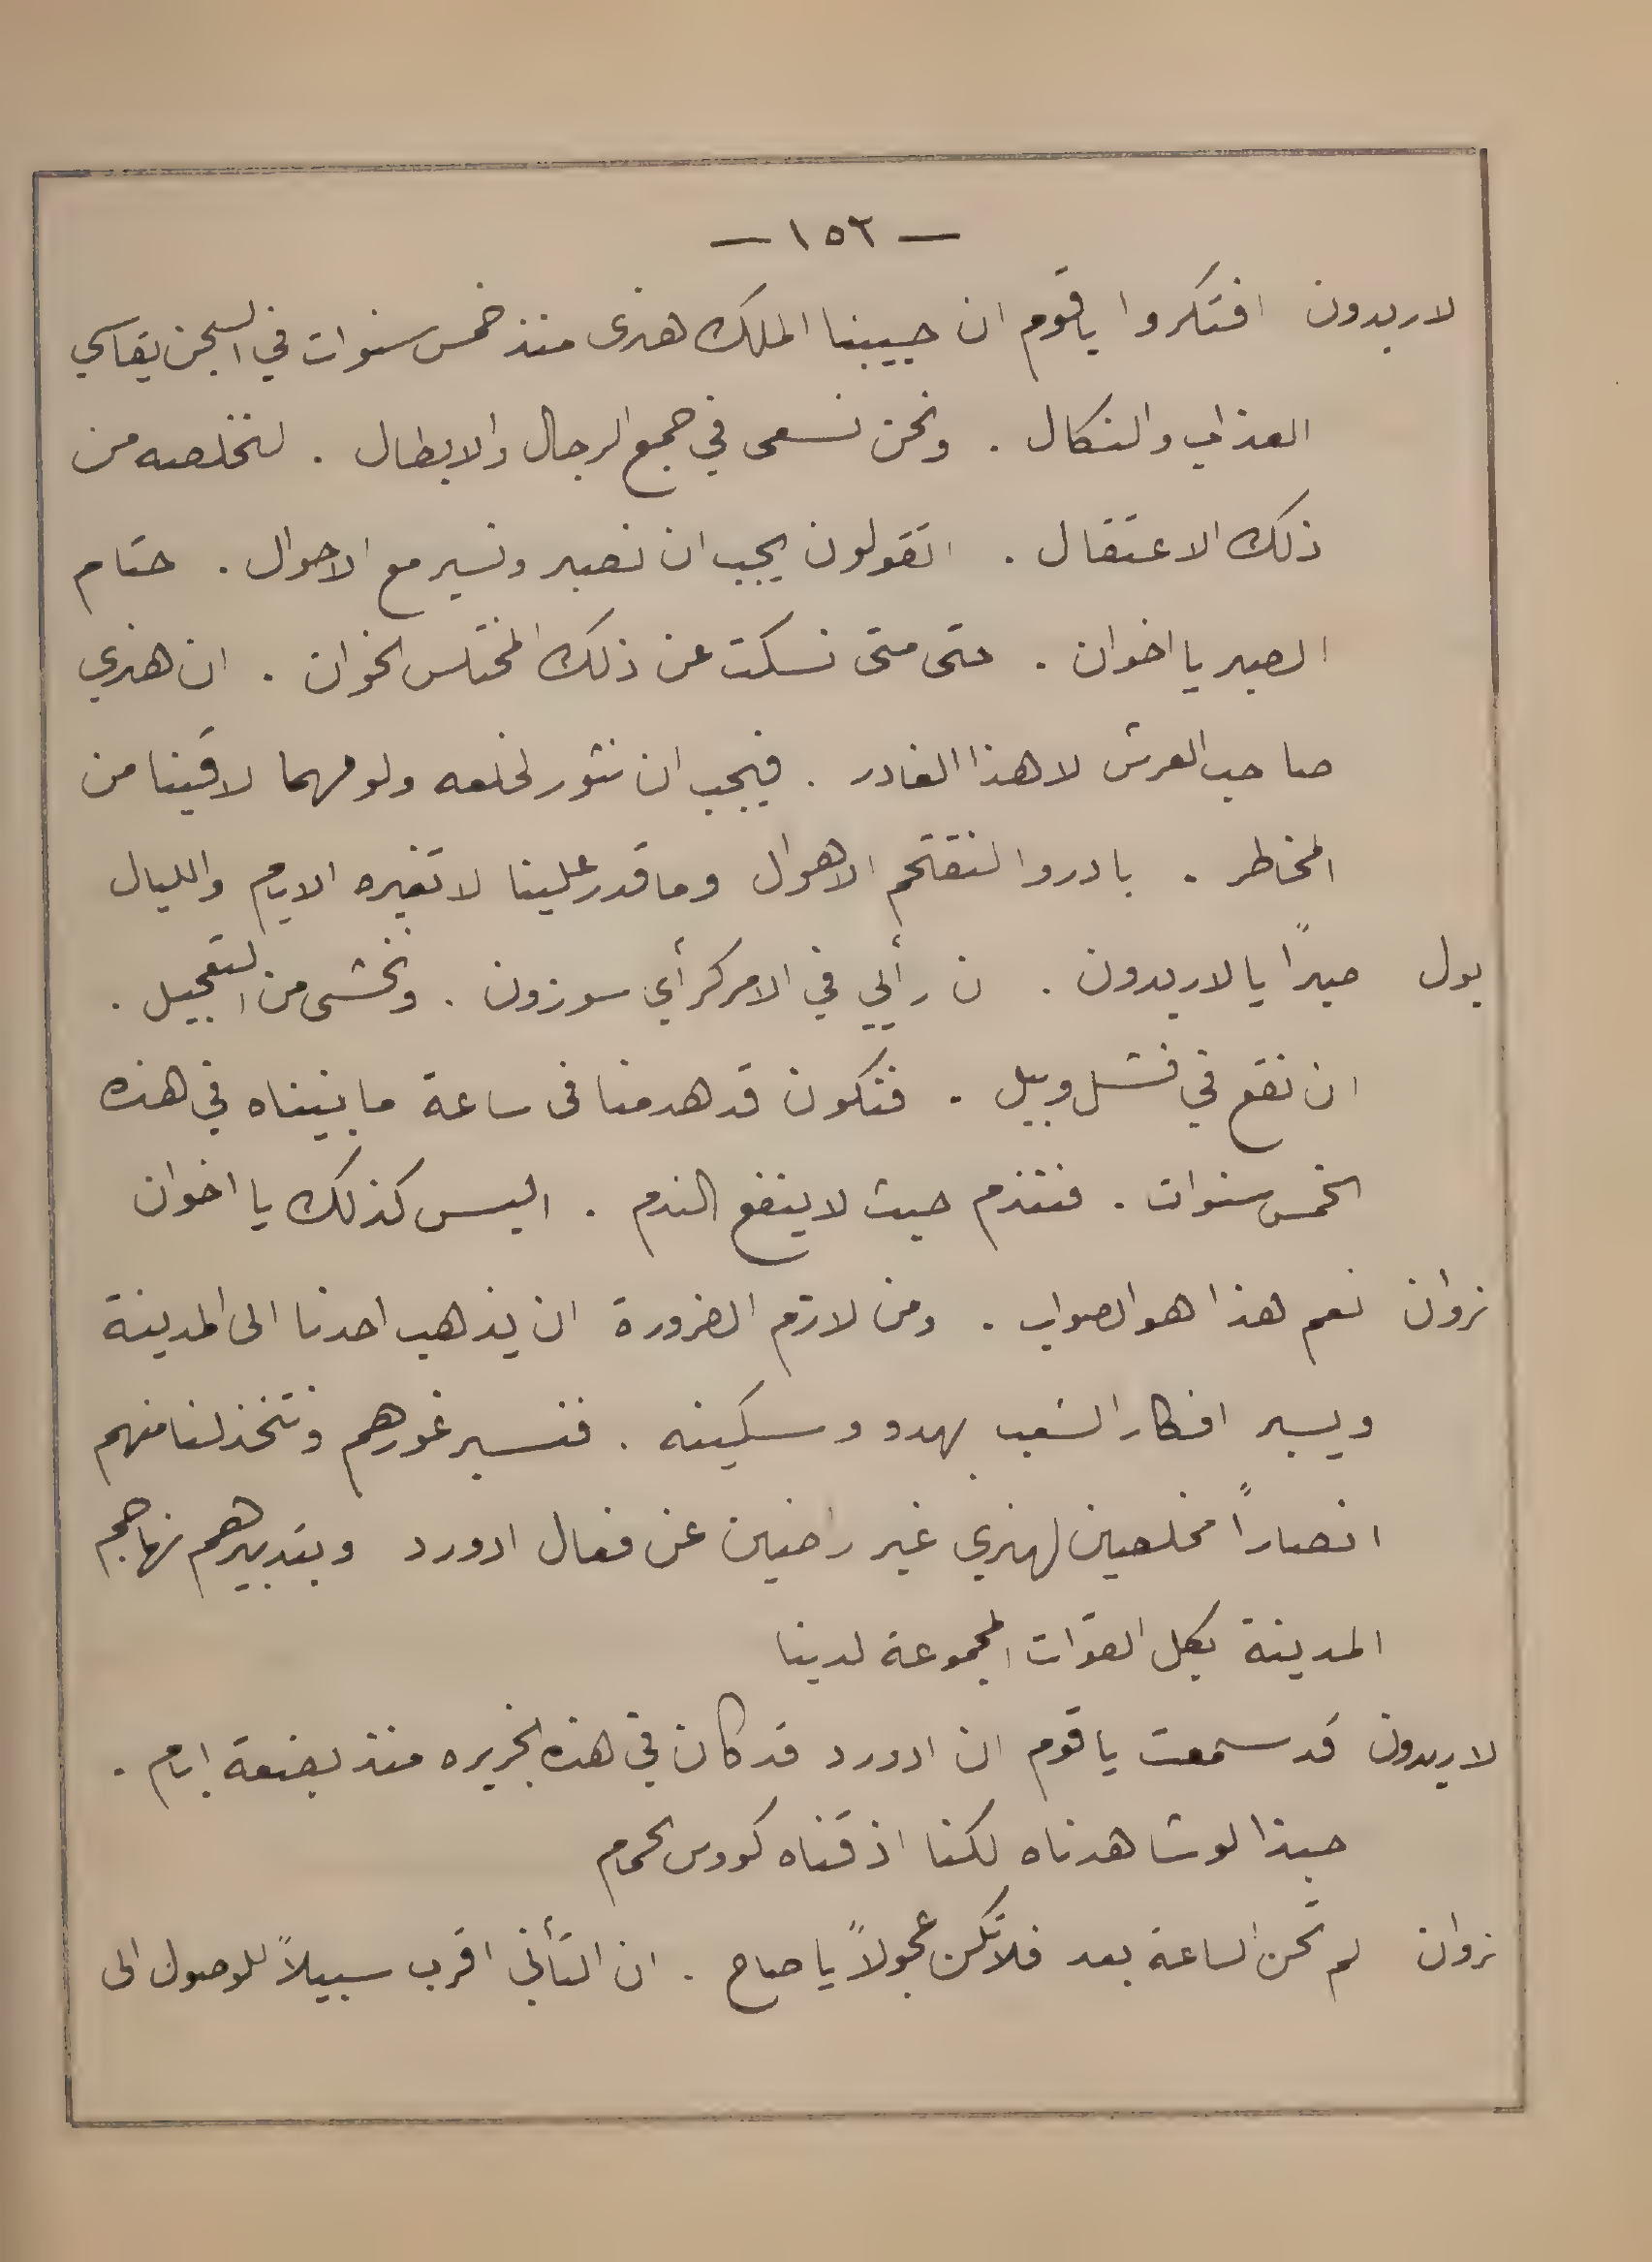 — ١٥٢ —
لاريدون افتكروا ياقوم ان حبيبنا الملك هنرى منذ خمس سنوات في السجن يقاسي
العذاب والنكال . ونحن نسعى في جمع الرجال والابطال . لنخلصه من
ذلك الاعتقال . اتقولون يجب ان نصبر ونسير مع الاحوال . حتام
الصبر يا اخوان . حتى متى نسكت عن ذلك المختلس الخوان . ان هنري
صاحب العرش لا هذا الغادر . فيجب ان نثور لخلعه ولو مهما لاقينا من
المخاطر . بادروا لنقتحم الاهوال وما قدر علينا لا تغيره الايام والليال
بول صبرًا يا لاريدون . ن رأيي في الامر كرأي سورزون . ونخشى من التعجيل .
ان نقع في فشل وبيل . فنكون قد هدمنا فى ساعة ما بنيناه في هذه
الخمس سنوات . فنندم حيث لا ينفع الندم . اليس كذلك يا اخوان
نروان نعم هذا هو الصواب . ومن لازم الضرورة ان يذهب احدنا الى المدينة
ويسبر افكار الشعب بهدو وسكينه . فنسبر غورهم ونتخذ لنا منهم
انصاراً مخلصين لهنري غير راضين عن فعال ادورد وبتدبيرهم نهاجم
المدينة بكل القوات المجموعة لدينا
لاريدون قد سمعت ياقوم ان ادورد قد كان في هذه الجزيره منذ بضعة ايام .
حبذا لو شاهدناه لكنا اذقناه كووس الحمام
نروان لم تحن الساعة بعد فلا تكن عجولاً يا صاح . ان التأني اقرب سبيلاً للوصول الى